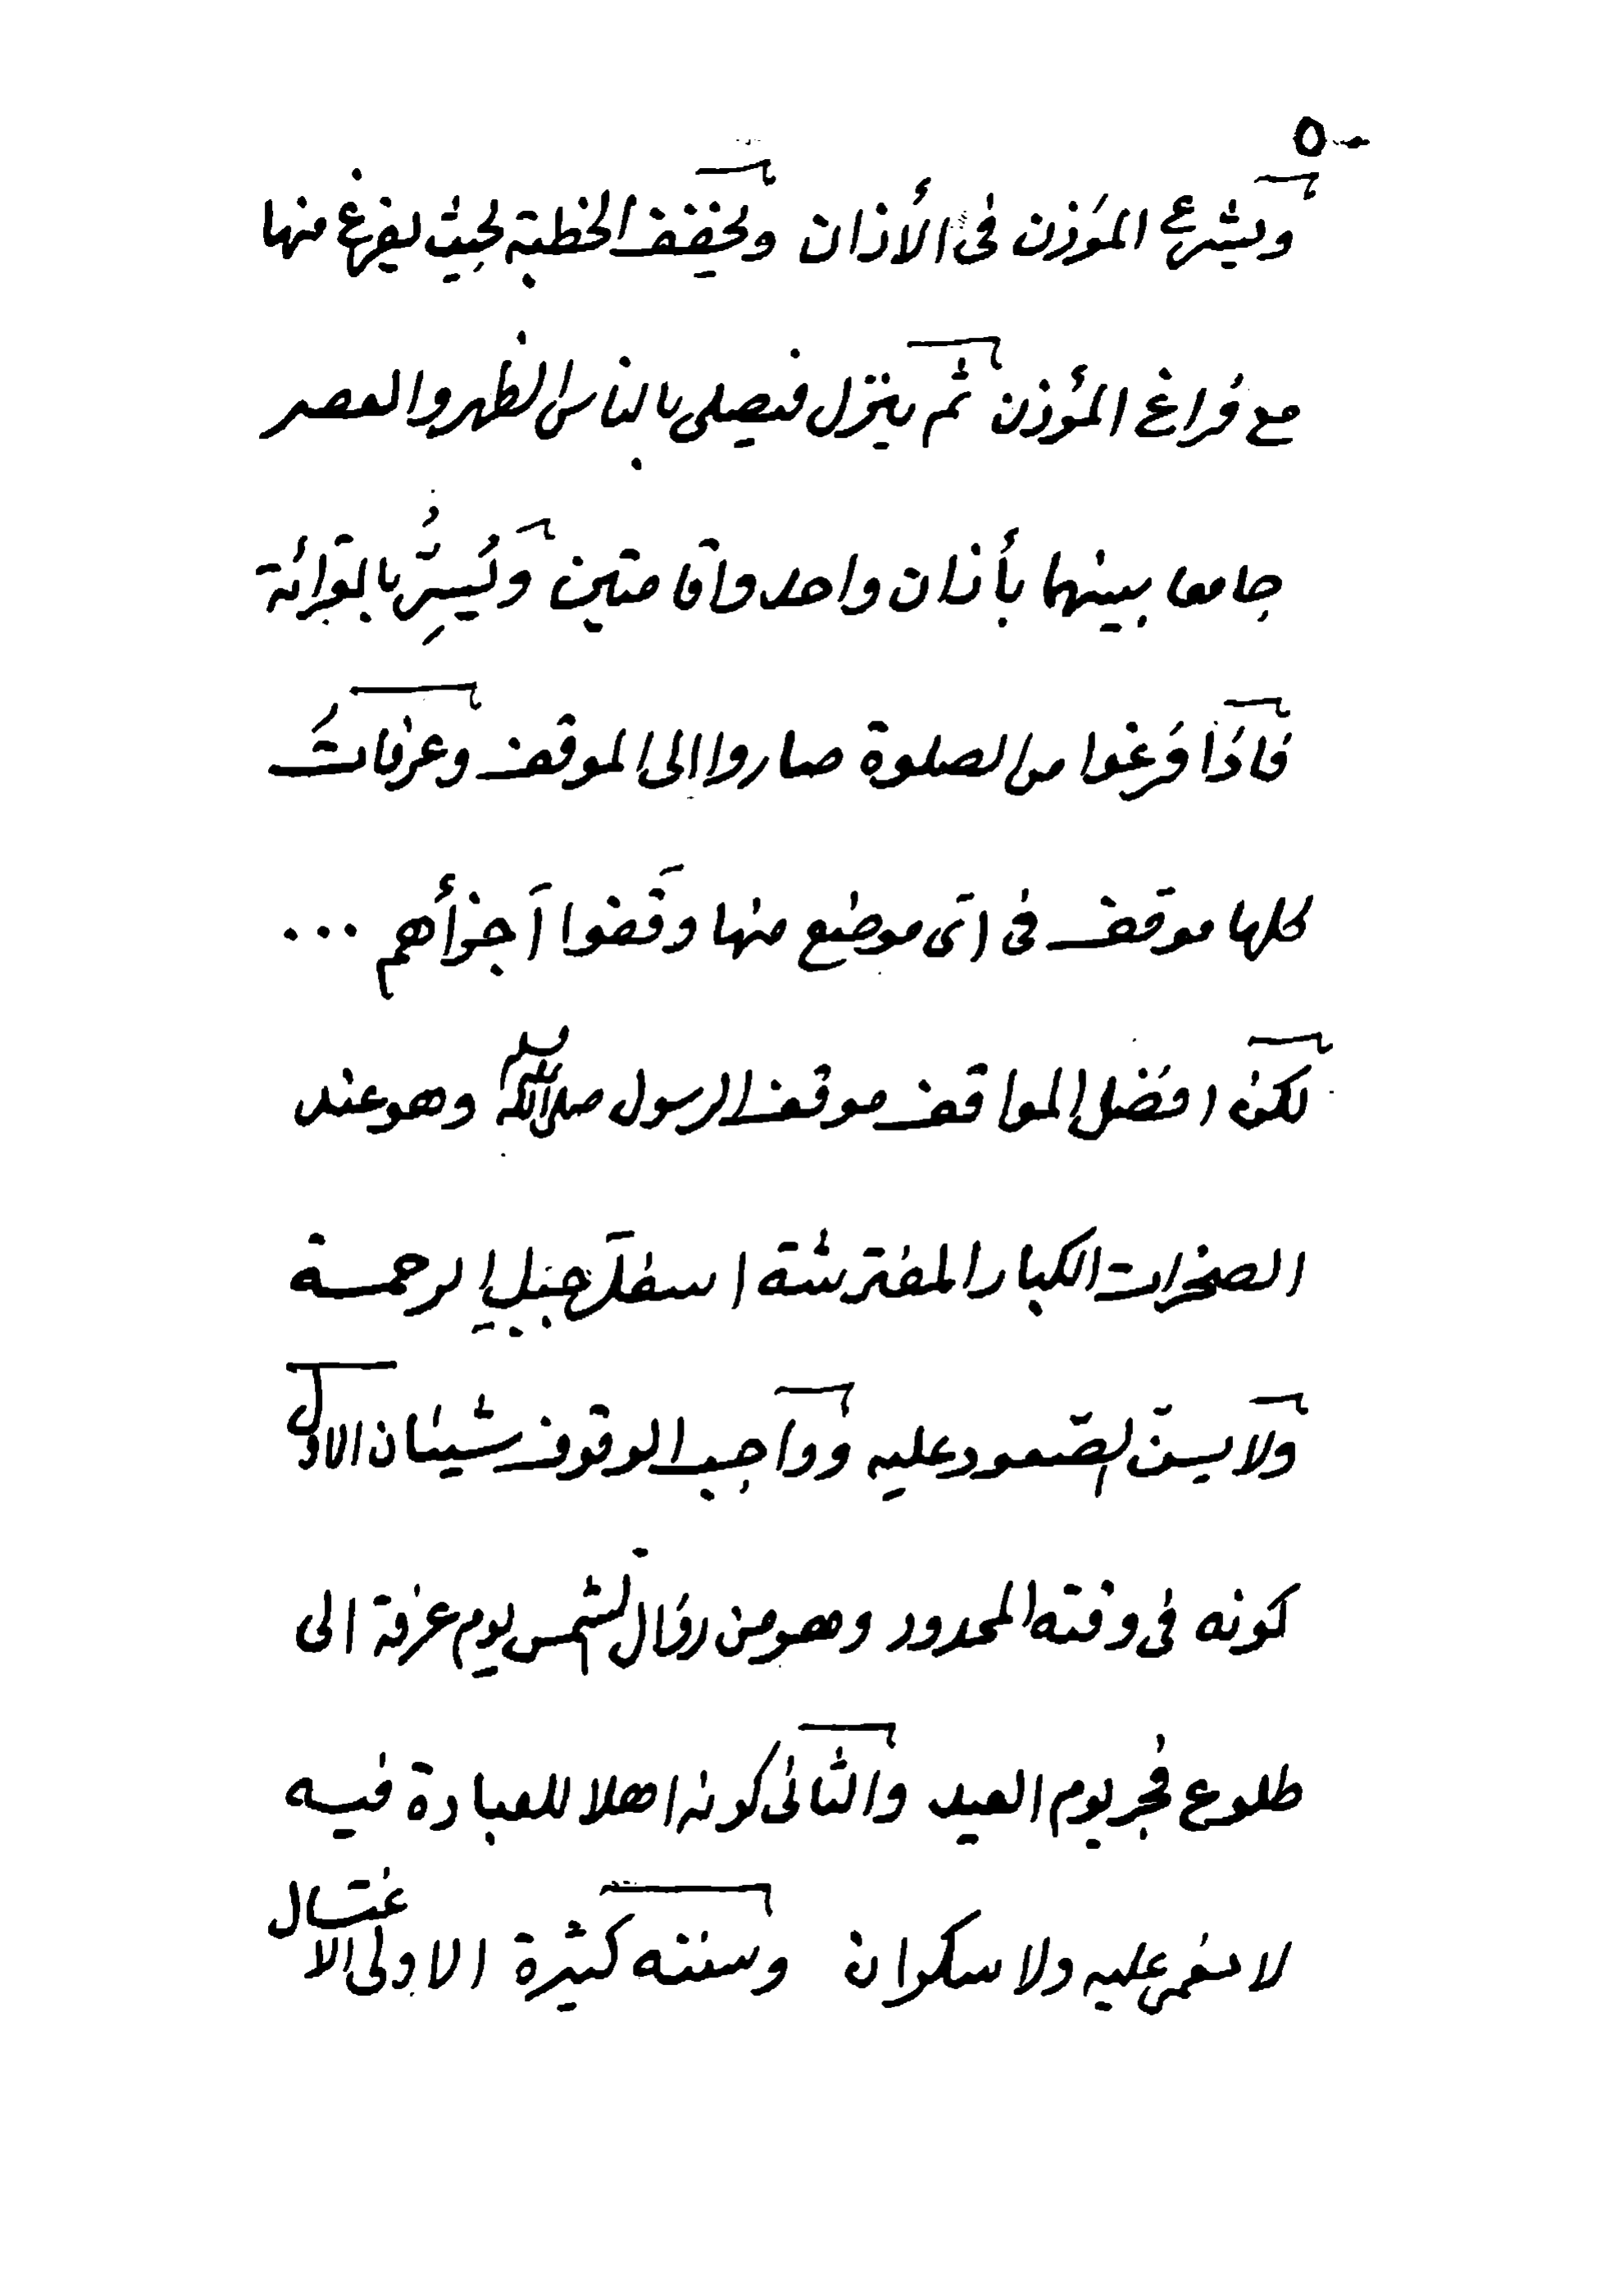 ٥٠
ويشرع المؤذن فى الأذان ويخفف الخطبة بحيث يفرغ منها
مع فراغ المؤذن ثم ينزل فيصلى بالناس الظهر والعصر
جامعا بينهما بأذان واحد واقامتين ويُسِرُّ بالقرائة
فاذا فرغوا من الصلوة صاروا الى الموقف وعرفاتُ
كلها موقف فى اى موضع منها وقفوا اجزأهم ...
لكن افضل المواقف موقف الرسول صلى الله عليه وسلم وهو عند
الصخرات الكبار المفترشة اسفلَ جبل الرحمة
ولا يسن الصّعود عليه وواجب الوقوف شيئان الاول
كونه فى وقته المحدود وهو من زوال الشمس يوم عرفة الى
طلوع فجر يوم العيد والثانى كونه اهلا للعبادة فيه
لا مغمى عليه ولا سكران وسننه كثيرة الاولى الاغتسال